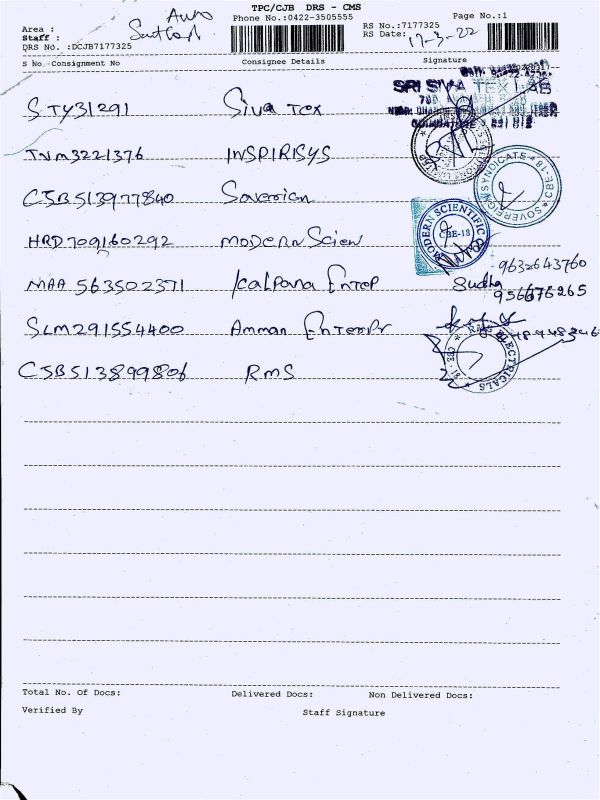 TPC/CJB DRS - CMS
Phone No.:0422-3505555
Page No.:1
Area :
Staff :
DRS No. :DCJB7177325
RS No.:7177325
RS Date: 17-3-22
S No. Consignment No Consignee Details Signature
STY31291 Siva Tex
SRI SIVA TEX LAB
TNM3221376 INSPIRISYS
CJB513977840 Soverign
SOVEREIGN SYNDICATE CBE-18
HRD709160292 MODErn Scien
MODERN SCIENTIFIC CBE-18
9632643760
MAA 563502371 Kalpana EnteP Sudha
956676265
SLM291554400 Amman EnterPr
CJB513899806 RMS
RMS ELECTRICALS CBE-18
Total No. Of Docs: Delivered Docs: Non Delivered Docs:
Verified By Staff Signature